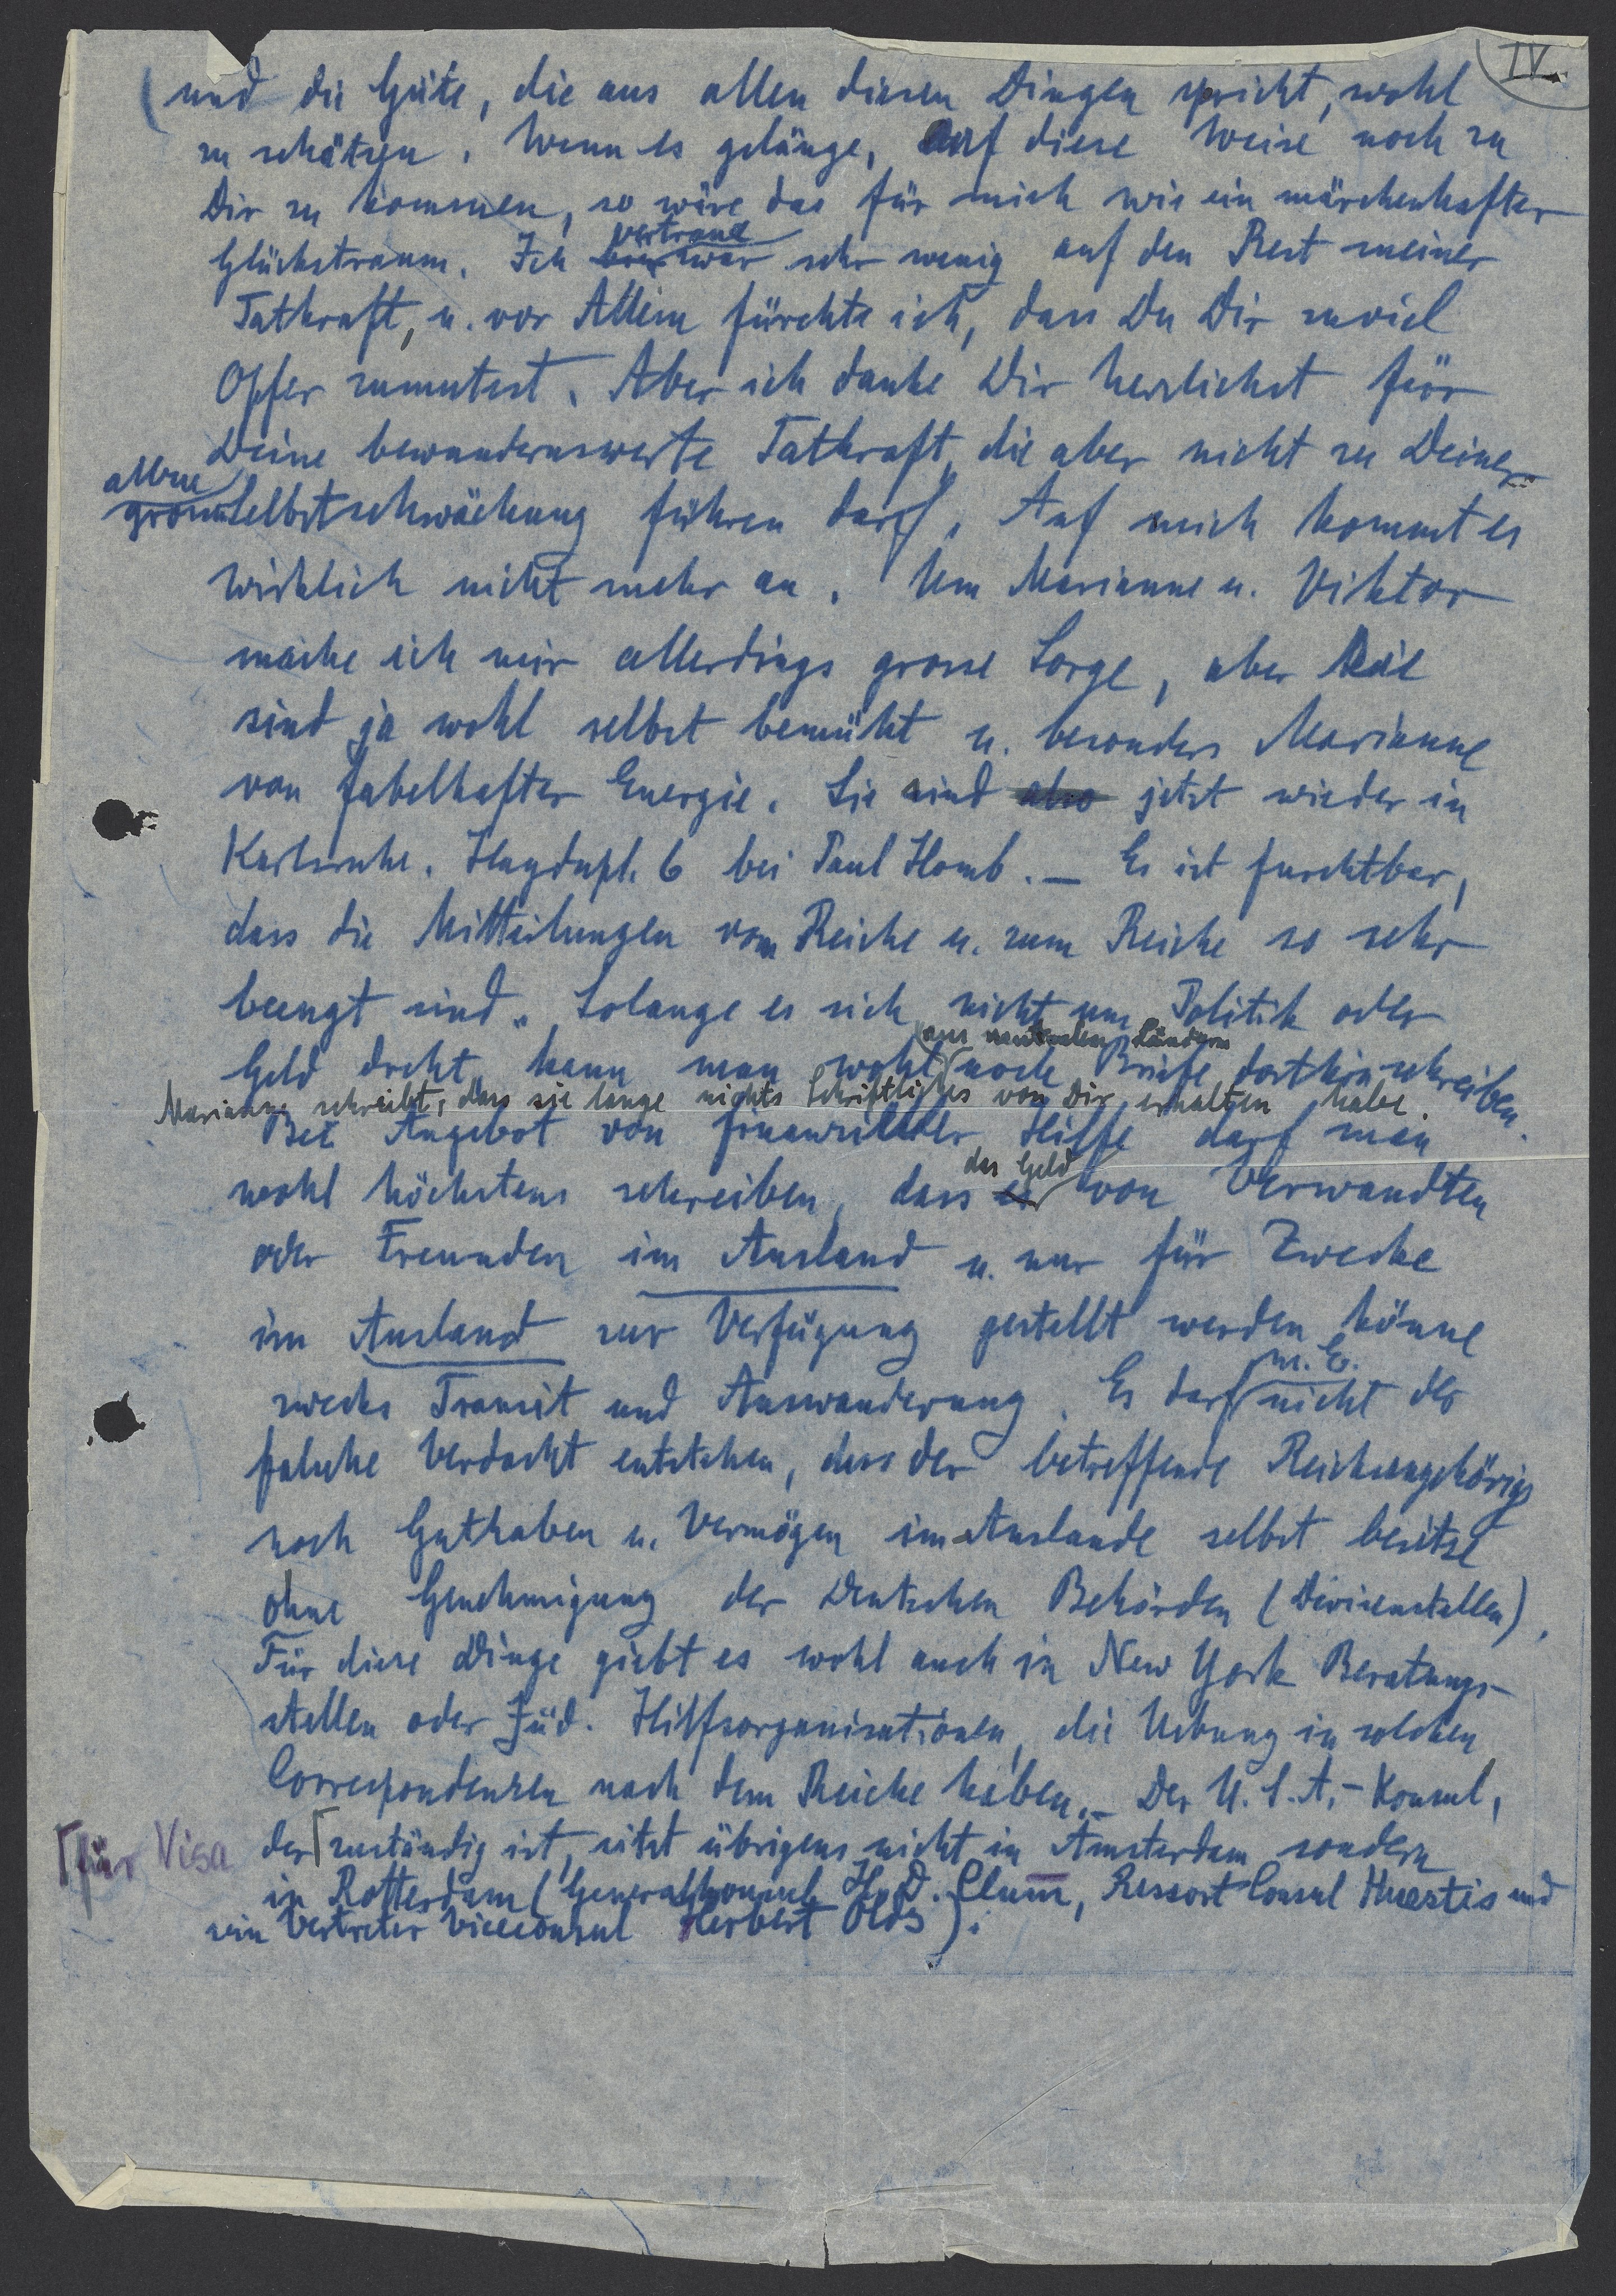 IV.
und die Güte, die aus allen diesen Dingen spricht, wohl
zu schätzen. Wenn es gelänge, auf diese Weise noch zu
Dir zu kommen, so wäre das für mich wie ein märchenhafter
vertraue
Glückstraum. Ich zwar sehr wenig auf den Rest meiner
Tatkraft, u. vor Allem fürchte ich, dass Du Dir zuviel
Opfer zumutest. Aber ich danke Dir herzlichst für
Deine bewundernswerte Tatkraft, die aber nicht zu Deiner
allzu
grossen Selbstschwächung führen darf. Auf mich kommt es
wirklich nicht mehr an. Um Marianne u. Viktor
mache ich mir allerdings grosse Sorge, aber die
sind ja wohl selbst bemüht u. besonders Marianne
von fabelhafter Energie. Sie sind also jetzt wieder in
Karlsruhe. Haydnpl. 6 bei Paul Homb. — Es ist furchtbar,
dass die Mitteilungen vom Reiche u. zum Reiche so sehr
beengt sind. Solange es sich nicht um Politik oder
aus neutralen Ländern
Geld dreht, kann man wohl noch Briefe dorthin schreiben.
Marianne schreibt, dass sie lange nichts Schriftliches von Dir erhalten habe.
Bei Angebot von finanzieller Hilfe darf man
das Geld
wohl höchstens schreiben, dass es von Verwandten
oder Freunden im Ausland u. nur für Zwecke
im Ausland zur Verfügung gestellt werden könne
m. E.
zwecks Transit und Auswanderung. Es darf nicht der
falsche Verdacht entstehen, dass der betreffende Reichsangehörige
noch Guthaben u. Vermögen im Auslande selbst besitze
ohne Genehmigung der Deutschen Behörden (Devisenstellen).
Für diese Dinge giebt es wohl auch in New York Beratungs-
stellen oder Jüd. Hilfsorganisationen, die Uebung in solchen
Correspondenzen nach dem Reiche haben. — Der U.S.A.-Konsul,
für Visa
der zuständig ist, sitzt übrigens nicht in Amsterdam sondern
in Rotterdam (Generalkonsul H. D. Clum, Ressort Consul Huestis und
sein Vertreter Viceconsul Herbert Olds).